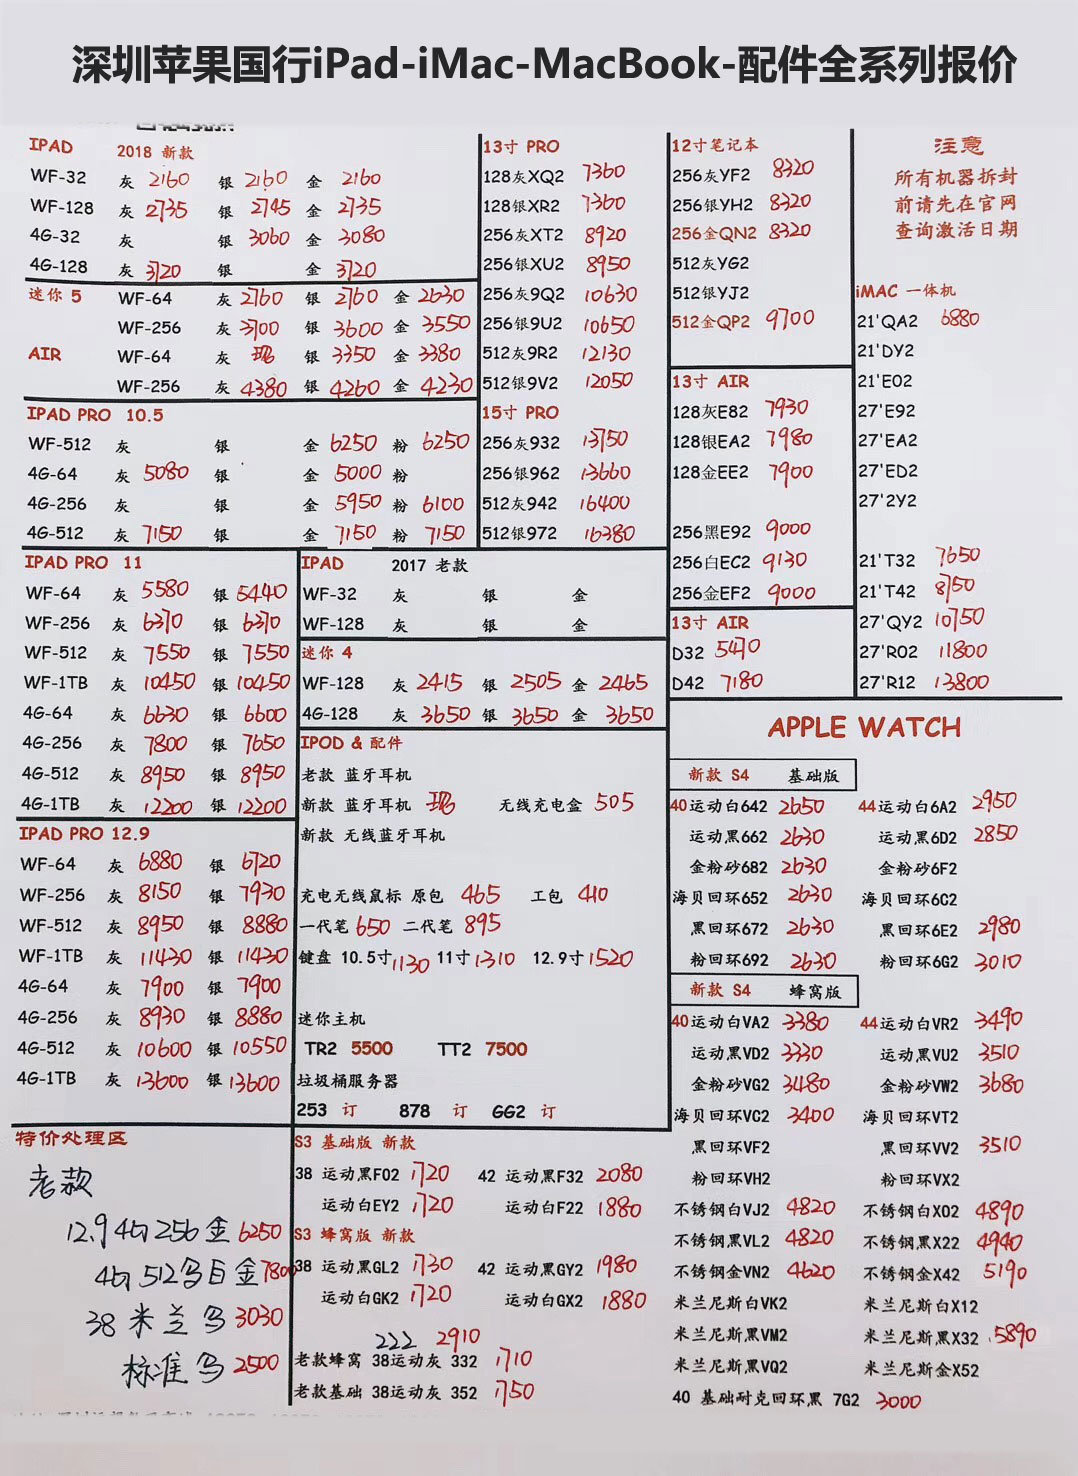 深圳苹果国行iPad-iMac-MacBook-配件全系列报价
IPAD 2018 新款
WF-32 灰 2160 银 2160 金 2160
WF-128 灰 2735 银 2745 金 2735
4G-32 灰 银 3060 金 3080
4G-128 灰 3720 银 金 3720
迷你 5 WF-64 灰 2760 银 2760 金 2630
WF-256 灰 3700 银 3600 金 3550
AIR WF-64 灰 现 银 3350 金 3380
WF-256 灰 4380 银 4260 金 4230
IPAD PRO 10.5
WF-512 灰 银 金 6250 粉 6250
4G-64 灰 5080 银 金 5000 粉
4G-256 灰 银 金 5950 粉 6100
4G-512 灰 7150 银 金 7150 粉 7150
IPAD PRO 11
WF-64 灰 5580 银 5440
WF-256 灰 6370 银 6370
WF-512 灰 7550 银 7550
WF-1TB 灰 10450 银 10450
4G-64 灰 6630 银 6600
4G-256 灰 7800 银 7650
4G-512 灰 8950 银 8950
4G-1TB 灰 12200 银 12200
IPAD PRO 12.9
WF-64 灰 6880 银 6720
WF-256 灰 8150 银 7930
WF-512 灰 8950 银 8880
WF-1TB 灰 11430 银 11430
4G-64 灰 7900 银 7900
4G-256 灰 8930 银 8880
4G-512 灰 10600 银 10550
4G-1TB 灰 13600 银 13600
特价处理区
老款
12.9 4G 256 金 6250
4G 512 乌 白 金 7800
38 米 兰 乌 3030
标准 乌 2500
13寸 PRO
128灰XQ2 7360
128银XR2 7360
256灰XT2 8920
256银XU2 8950
256灰9Q2 10630
256银9U2 10650
512灰9R2 12130
512银9V2 12050
15寸 PRO
256灰932 13750
256银962 13660
512灰942 16400
512银972 16380
IPAD 2017 老款
WF-32 灰 银 金
WF-128 灰 银 金
迷你 4
WF-128 灰 2415 银 2505 金 2465
4G-128 灰 3650 银 3650 金 3650
IPOD & 配件
老款 蓝牙耳机
新款 蓝牙耳机 现 无线充电盒 505
新款 无线蓝牙耳机
充电无线鼠标 原包 465 工包 410
一代笔 650 二代笔 895
键盘 10.5寸 1130 11寸 1310 12.9寸 1520
迷你主机
TR2 5500 TT2 7500
垃圾桶服务器
253 订 878 订 GG2 订
S3 基础版 新款
38 运动黑F02 1720 42 运动黑F32 2080
运动白EY2 1720 运动白F22 1880
S3 蜂窝版 新款
38 运动黑GL2 1730 42 运动黑GY2 1980
运动白GK2 1720 运动白GX2 1880
222 2910
老款蜂窝 38运动灰 332 1710
老款基础 38运动灰 352 1750
12寸笔记本
256灰YF2 8320
256银YH2 8320
256金QN2 8320
512灰YG2
512银YJ2
512金QP2 9700
13寸 AIR
128灰E82 7930
128银EA2 7980
128金EE2 7900
256黑E92 9000
256白EC2 9130
256金EF2 9000
13寸 AIR
D32 5470
D42 7180
注意
所有机器拆封
前请先在官网
查询激活日期
iMAC 一体机
21'QA2 6880
21'DY2
21'E02
27'E92
27'EA2
27'ED2
27'2Y2
21'T32 7650
21'T42 8750
27'QY2 10750
27'R02 11800
27'R12 13800
APPLE WATCH
新款 S4 基础版
40运动白642 2650 44运动白6A2 2950
运动黑662 2630 运动黑6D2 2850
金粉砂682 2630 金粉砂6F2
海贝回环652 2630 海贝回环6C2
黑回环672 2630 黑回环6E2 2980
粉回环692 2630 粉回环6G2 3010
新款 S4 蜂窝版
40运动白VA2 3380 44运动白VR2 3490
运动黑VD2 3330 运动黑VU2 3510
金粉砂VG2 3480 金粉砂VW2 3680
海贝回环VC2 3400 海贝回环VT2
黑回环VF2 黑回环VV2 3510
粉回环VH2 粉回环VX2
不锈钢白VJ2 4820 不锈钢白X02 4890
不锈钢黑VL2 4820 不锈钢黑X22 4940
不锈钢金VN2 4620 不锈钢金X42 5190
米兰尼斯白VK2 米兰尼斯白X12
米兰尼斯黑VM2 米兰尼斯黑X32 5890
米兰尼斯黑VQ2 米兰尼斯金X52
40 基础耐克回环黑 7G2 3000